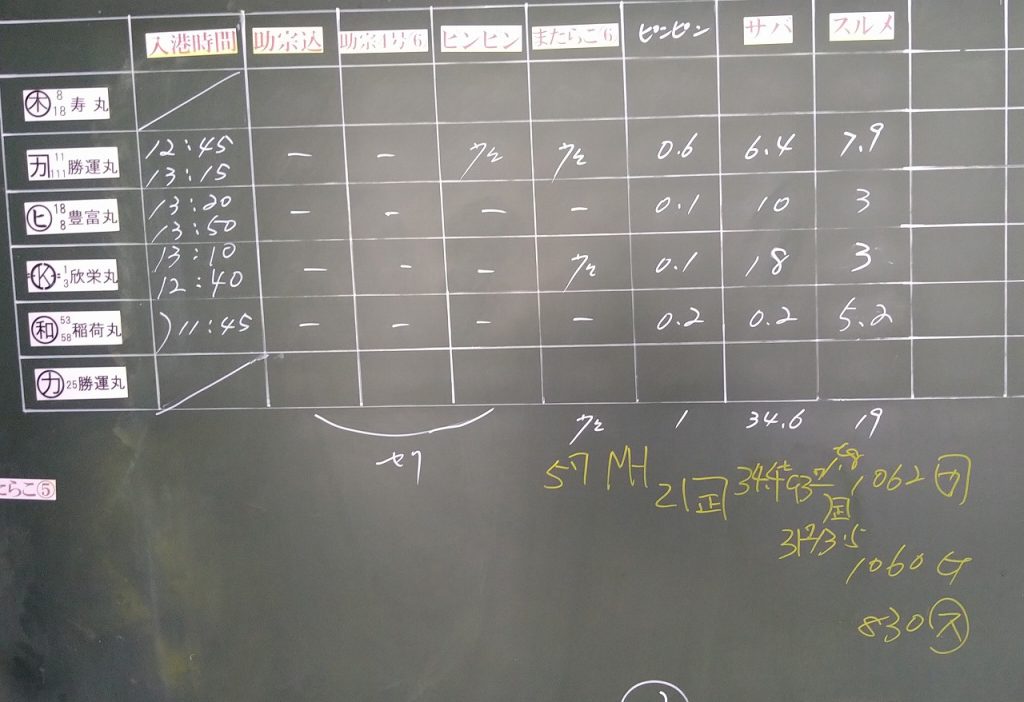 入港時間 助宗込 助宗4号6 ピンピン またらこ6 ピンピン サバ スルメ
木 8 18 寿丸
カ 11 111 勝運丸 12:45 13:15 ー ー ケ ケ 0.6 6.4 7.9
ヒ 18 8 豊富丸 13:20 13:50 ー ー ー ー 0.1 10 3
K 1 3 欣栄丸 13:10 12:40 ー ー ー ケ 0.1 18 3
和 53 58 稲荷丸 11:45 ー ー ー ー 0.2 0.2 5.2
カ 25 勝運丸
ケ 1 34.6 19
セリ
57 MH 21 正 1,062 カ
たらこ⑤
1060
830 ス